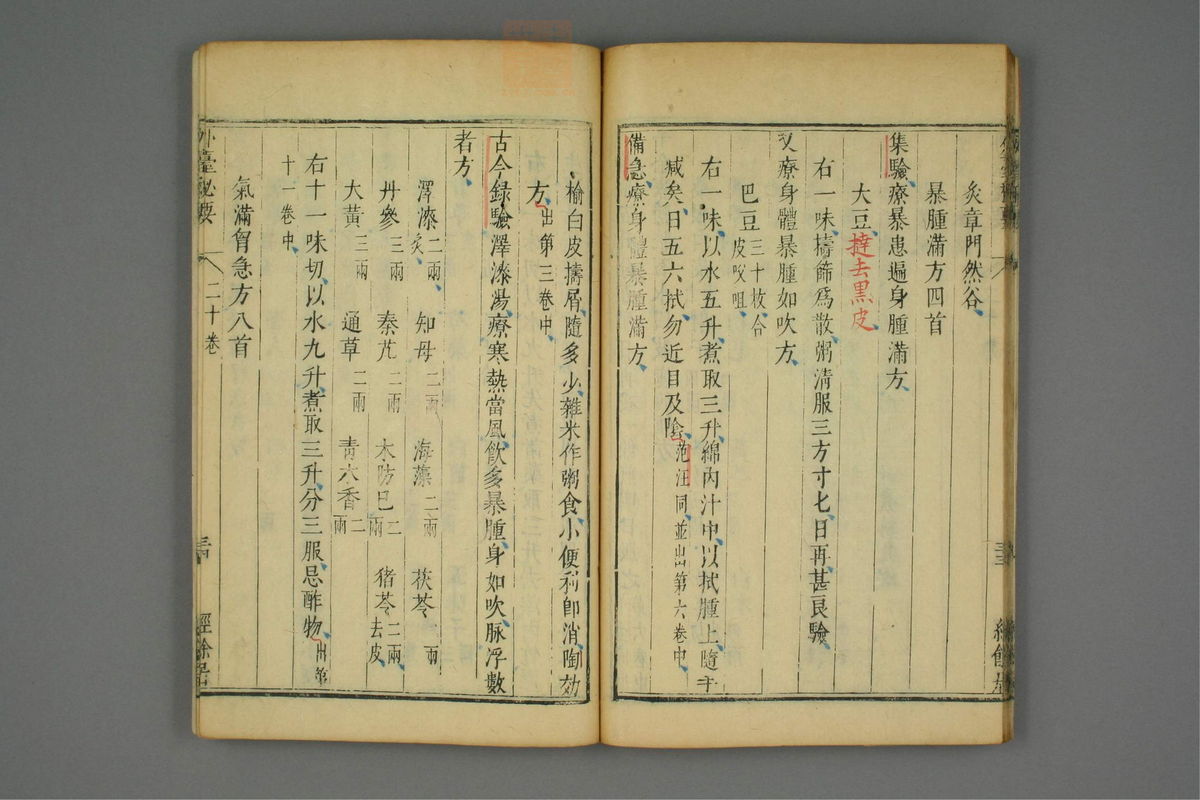 灸章門然谷
暴腫滿方四首
集驗療暴患遍身腫滿方
大豆撻去黑皮
右一味擣篩爲散粥清服三方寸七日再甚良驗
又療身體暴腫如吹方
巴豆三十枚合
皮㕮咀
右一味以水五升煮取三升綿内汁中以拭腫上隨手
減矣日五六拭勿近目及陰范汪同並出第六卷中
備急療身體暴腫滿方
榆白皮擣屑隨多少雜米作粥食小便利即消陶効
方出第三卷中
古今録驗澤漆湯療寒熱當風飲多暴腫身如吹脉浮數
者方
澤漆二兩炙 知母二兩 海藻二兩 茯苓一兩
丹參三兩 秦艽二兩 木防己二兩 豬苓二兩去皮
大黃三兩 通草二兩 青木香二兩
右十一味切以水九升煮取三升分三服忌酢物出第
十一卷中
氣滿胷急方八首
外臺秘要 二十卷 三四 經餘居